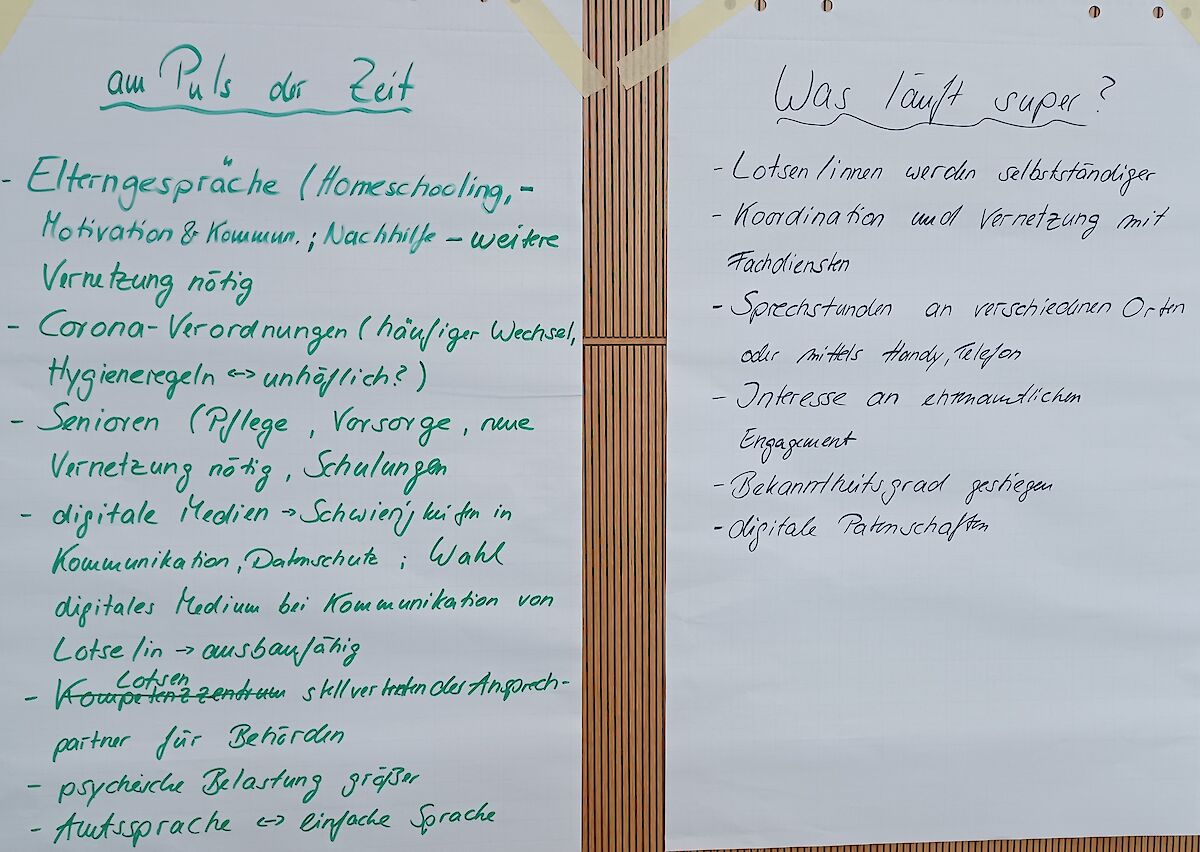 am Puls der Zeit
- Elterngespräche (Homeschooling, -
Motivation & Kommun. ; Nachhilfe - weitere
Vernetzung nötig
- Corona-Verordnungen (häufiger Wechsel,
Hygieneregeln <-> unhöflich?)
- Senioren (Pflege , Vorsorge , neue
Vernetzung nötig , Schulungen
- digitale Medien → Schwierigkeiten in
Kommunikation, Datenschutz ; Wahl
digitales Medium bei Kommunikation von
Lotse/in → ausbaufähig
Lotsen
- Kompetenzzentrum stellvertretendes Ansprech-
partner für Behörden
- psychische Belastung größer
- Amtssprache <-> einfache Sprache
Was läuft super?
- Lotsen/innen werden selbstständiger
- Koordination und Vernetzung mit
Fachdiensten
- Sprechstunden an verschiedenen Orten
oder mittels Handy, Telefon
- Interesse an ehrenamtlichen
Engagement
- Bekanntheitsgrad gestiegen
- digitale Patenschaften